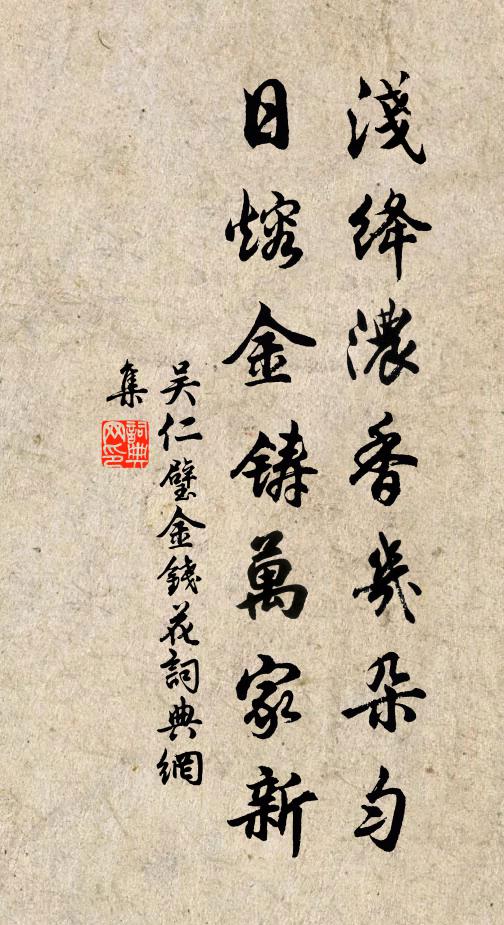 淺絳濃香幾朵勻
日熔金鑄萬家新
吳仁璧金錢花詞典網
集
詞典
网印